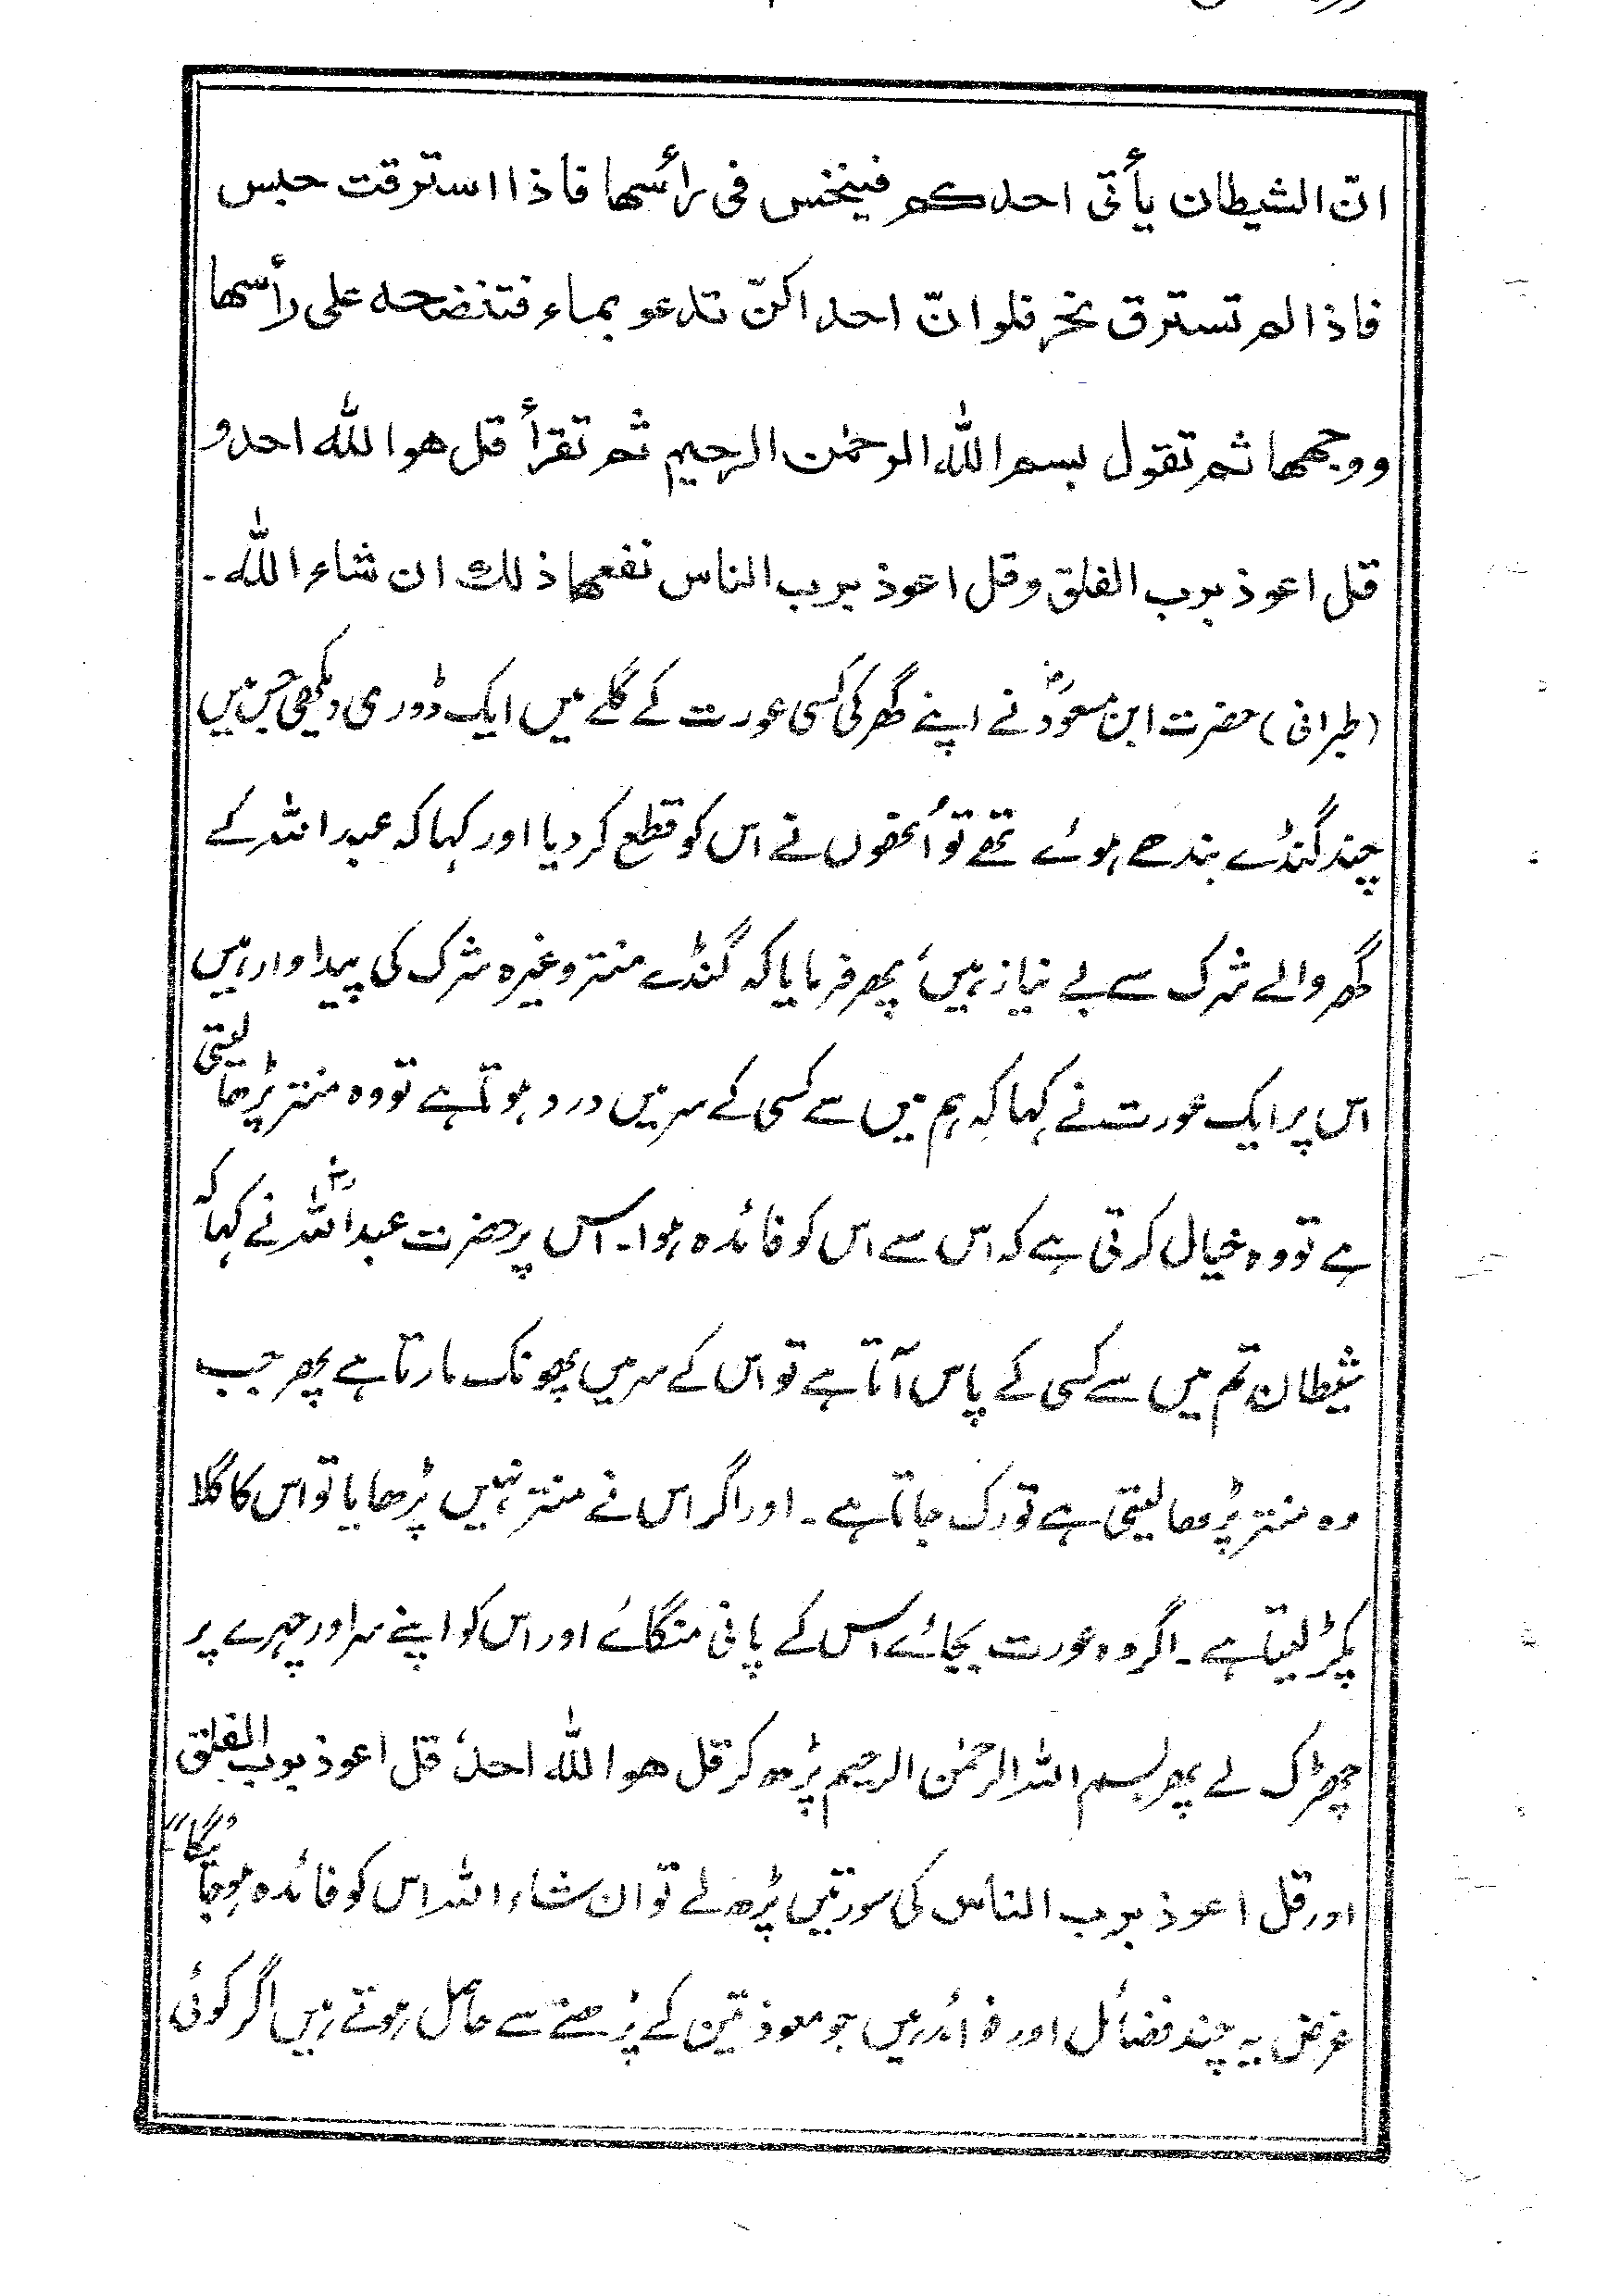 انّ الشیطان یأتی احدکم فینخس فی رأسھا فاذا استرقت حبس
فاذا لم تسترق نخر فلو انّ احداکنّ تدعو بماء فتنضحہ علی رأسھا
ووجھھا ثم تقول بسم اللہ الرحمٰن الرحیم ثم تقرأ قل ھو اللہ احد و
قل اعوذ برب الفلق وقل اعوذ برب الناس نفعھا ذلک ان شاء اللہ۔
(طبرانی) حضرت ابن مسعودؓ نے اپنے گھر کی کسی عورت کے گلے میں ایک ڈوری دیکھی جس میں
چند گنڈے بندھے ہوئے تھے تو اُنھوں نے اس کو قطع کر دیا اور کہا کہ عبد اللہ کے
گھر والے شرک سے بے نیاز ہیں، پھر فرمایا کہ گنڈے منتر وغیرہ شرک کی پیداوار ہیں
اس پر ایک عورت نے کہا کہ ہم میں سے کسی کے سر میں درد ہوتا ہے تو وہ منتر پڑھا لیتی
ہے تو وہ خیال کرتی ہے کہ اس سے اس کو فائدہ ہوا۔ اس پر حضرت عبد اللہؓ نے کہا کہ
شیطان تم میں سے کسی کے پاس آتا ہے تو اس کے سر میں پھونک مارتا ہے پھر جب
وہ منتر پڑھا لیتی ہے تو رک جاتا ہے۔ اور اگر اس نے منتر نہیں پڑھایا تو اس کا گلا
پکڑ لیتا ہے۔ اگر وہ عورت بجائے اس کے پانی منگائے اور اس کو اپنے سر اور چہرے پر
چھڑک لے پھر بسم اللہ الرحمٰن الرحیم پڑھ کر قل ھو اللہ احد، قل اعوذ برب الفلق
اور قل اعوذ برب الناس کی سورتیں پڑھ لے تو ان شاء اللہ اس کو فائدہ ہوجائیگا"
غرض یہ چند فضائل اور فوائد ہیں جو معوذتین کے پڑھنے سے حاصل ہوتے ہیں اگر کوئی